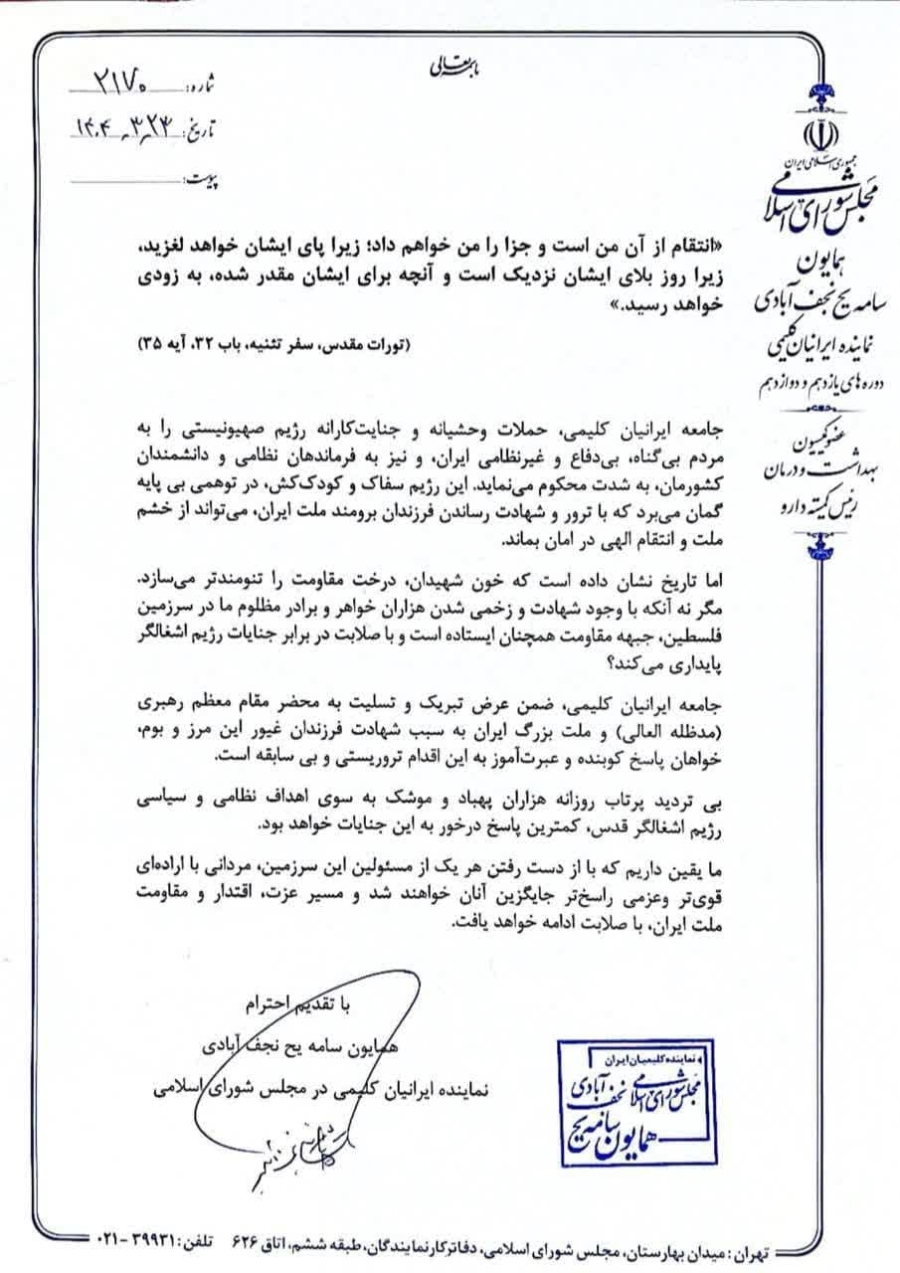 باسمه تعالی
شماره: ۲۱۷۰
تاریخ: ۱۴۰۴,۳,۲۳
پیوست:
جمهوری اسلامی ایران
مجلس شورای اسلامی
همایون
سامه یح نجف آبادی
نماینده ایرانیان کلیمی
دوره های یازدهم و دوازدهم
عضو کمیسیون
بهداشت و درمان
رئیس کمیته دارو
«انتقام از آن من است و جزا را من خواهم داد؛ زیرا پای ایشان خواهد لغزید،
زیرا روز بلای ایشان نزدیک است و آنچه برای ایشان مقدر شده، به زودی
خواهد رسید.»
(تورات مقدس، سفر تثنیه، باب ۳۲، آیه ۳۵)
جامعه ایرانیان کلیمی، حملات وحشیانه و جنایت‌کارانه رژیم صهیونیستی را به
مردم بی‌گناه، بی‌دفاع و غیرنظامی ایران، و نیز به فرماندهان نظامی و دانشمندان
کشورمان، به شدت محکوم می‌نماید. این رژیم سفاک و کودک‌کش، در توهمی بی پایه
گمان می‌برد که با ترور و شهادت رساندن فرزندان برومند ملت ایران، می‌تواند از خشم
ملت و انتقام الهی در امان بماند.
اما تاریخ نشان داده است که خون شهیدان، درخت مقاومت را تنومندتر می‌سازد.
مگر نه آنکه با وجود شهادت و زخمی شدن هزاران خواهر و برادر مظلوم ما در سرزمین
فلسطین، جبهه مقاومت همچنان ایستاده است و با صلابت در برابر جنایات رژیم اشغالگر
پایداری می‌کند؟
جامعه ایرانیان کلیمی، ضمن عرض تبریک و تسلیت به محضر مقام معظم رهبری
(مدظله العالی) و ملت بزرگ ایران به سبب شهادت فرزندان غیور این مرز و بوم،
خواهان پاسخ کوبنده و عبرت‌آموز به این اقدام تروریستی و بی سابقه است.
بی تردید پرتاب روزانه هزاران پهباد و موشک به سوی اهداف نظامی و سیاسی
رژیم اشغالگر قدس، کمترین پاسخ درخور به این جنایات خواهد بود.
ما یقین داریم که با از دست رفتن هر یک از مسئولین این سرزمین، مردانی با اراده‌ای
قوی‌تر وعزمی راسخ‌تر جایگزین آنان خواهند شد و مسیر عزت، اقتدار و مقاومت
ملت ایران، با صلابت ادامه خواهد یافت.
با تقدیم احترام
همایون سامه یح نجف آبادی
نماینده ایرانیان کلیمی در مجلس شورای اسلامی
نماینده کلیمیان ایران
مجلس شورای اسلامی
نجف آبادی
همایون سامه یح
تهران: میدان بهارستان، مجلس شورای اسلامی، دفاتر کار نمایندگان، طبقه ششم، اتاق ۶۲۶ تلفن: ۳۹۹۳۱-۰۲۱